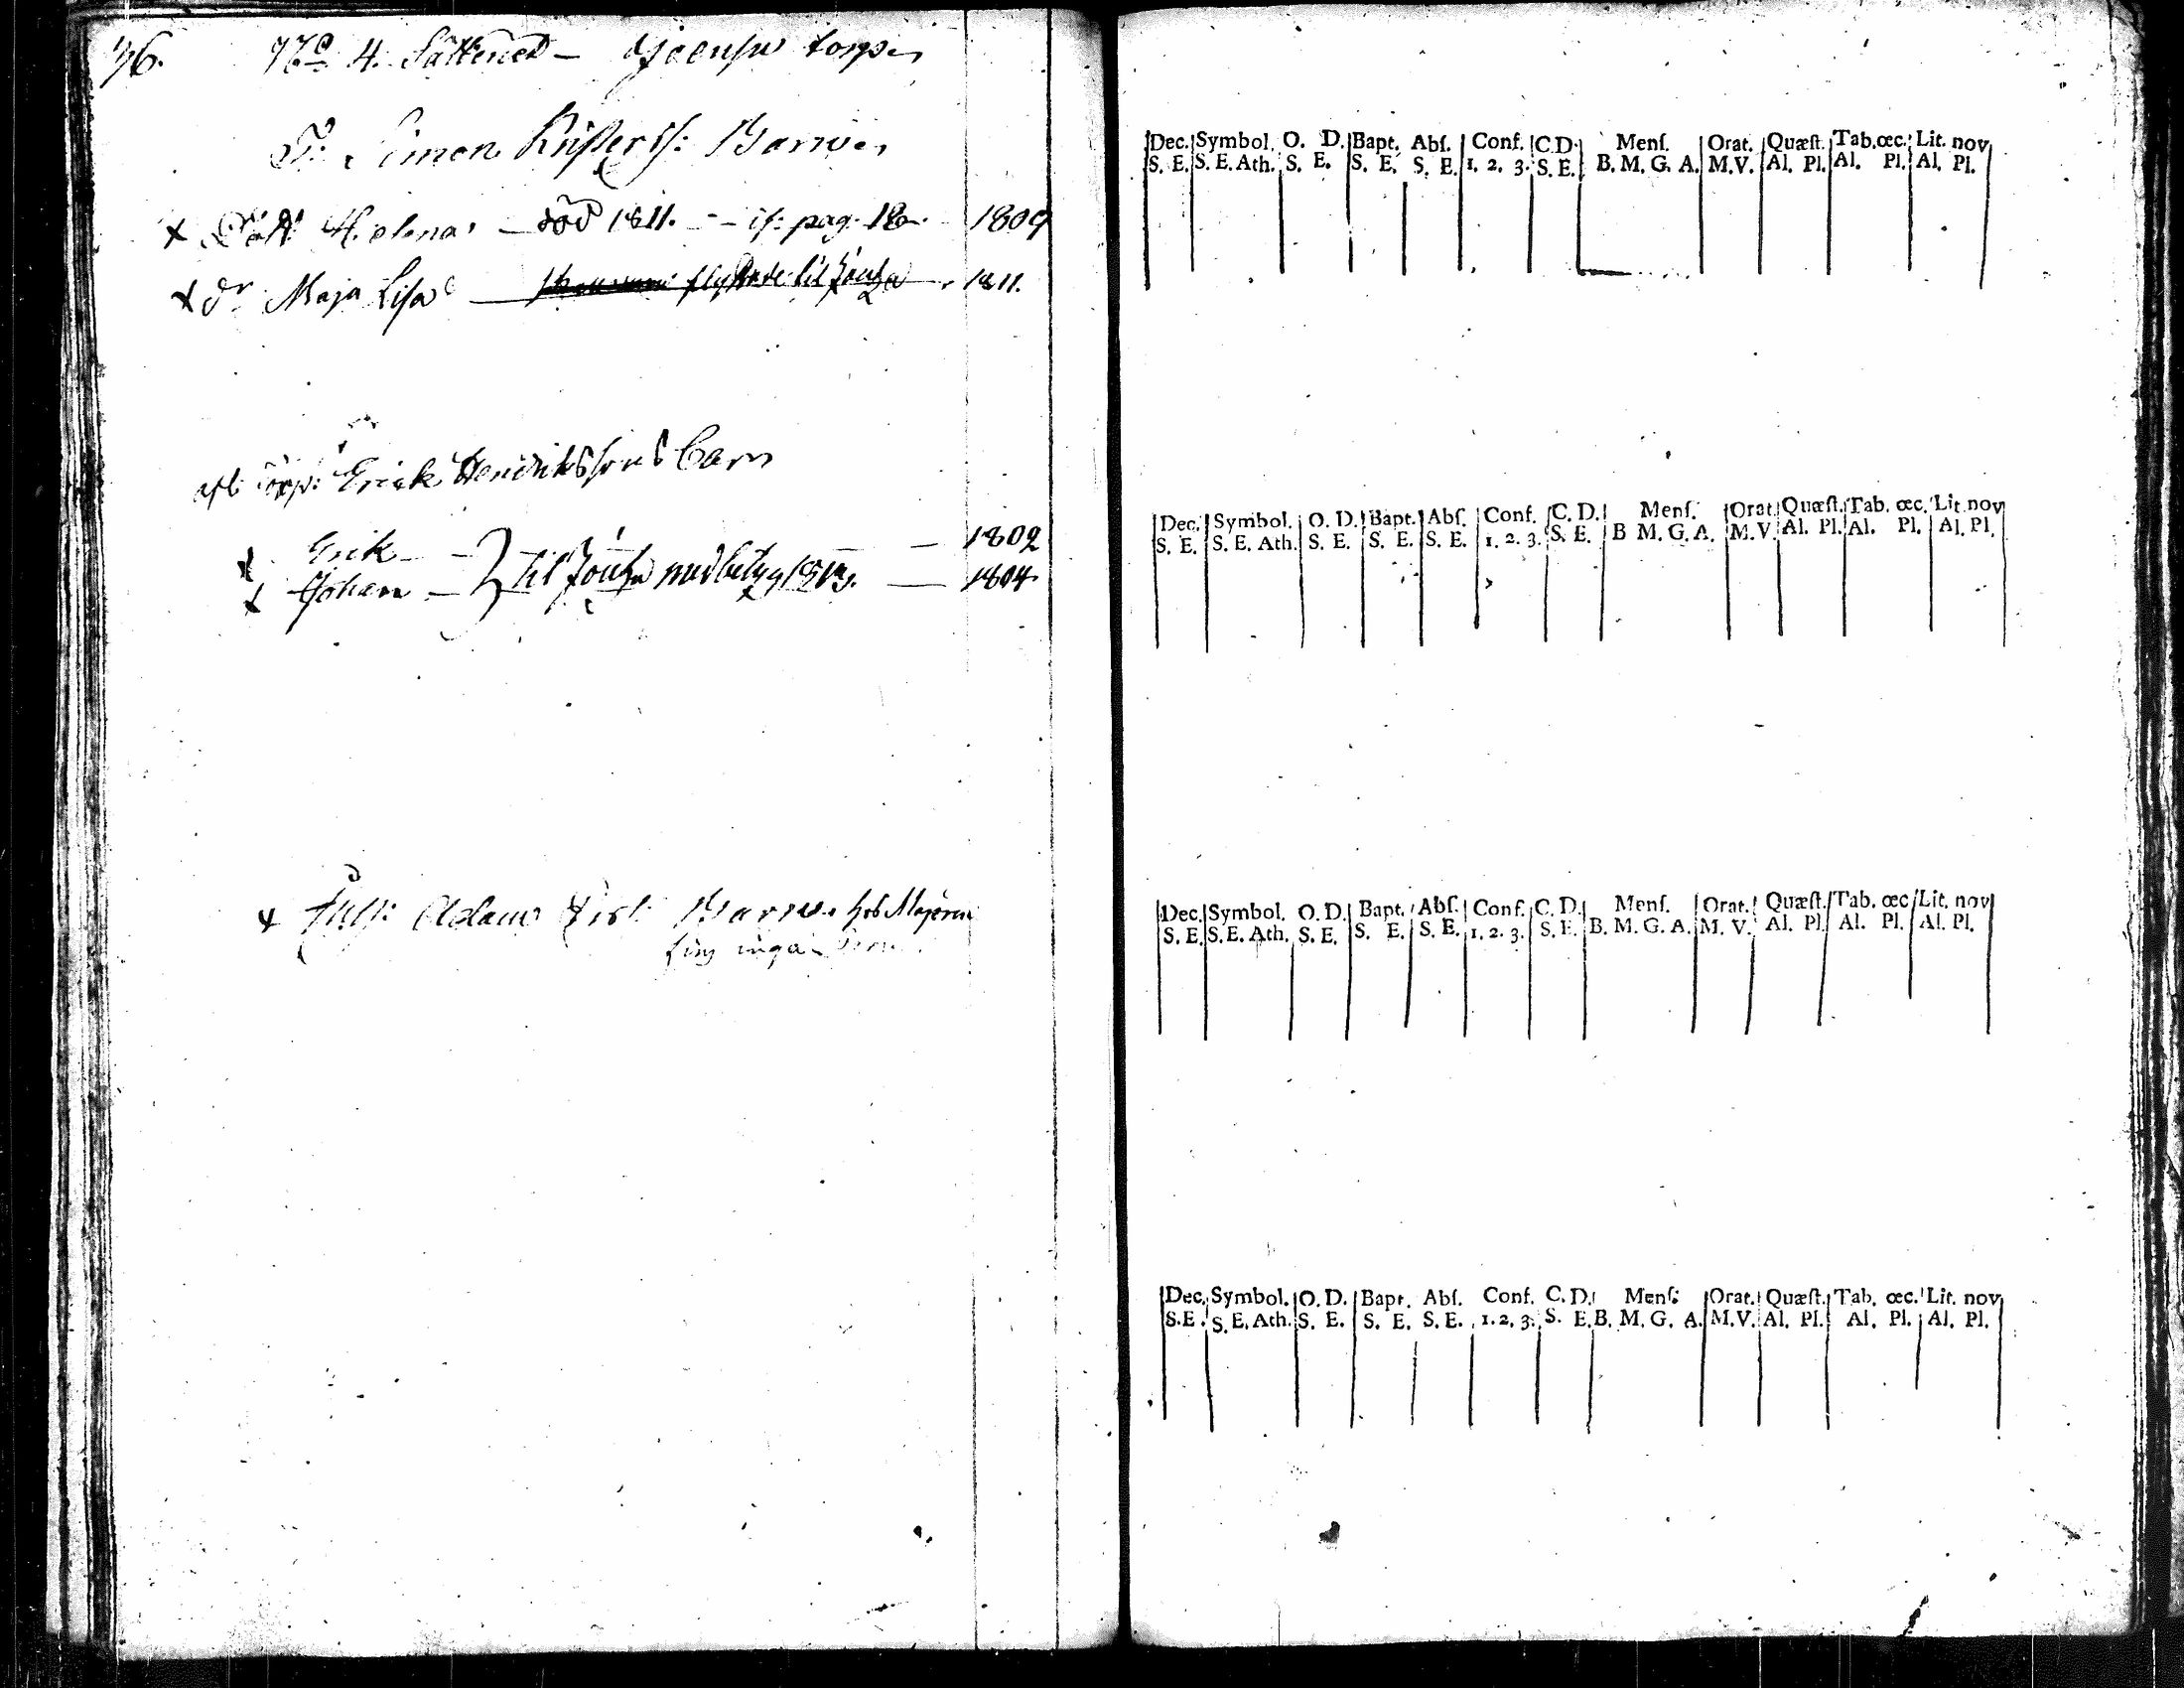 76. No 4. Sätteried - torper
T: Simon Kristers: Barn
x Dott: Helena - död 1811. - - if: pag. 18 1809
x dr Maja Lisa - flyttade til 1811.
afl: torp: Erick Hendrikssons Barn
x Erik - 1802
x Johan - til med betyg 1813. - 1804
x Adam Barn hos Majoren
fins inga
Dec. Symbol. O. D. Bapt. Abſ. Conf. C.D. Menſ. Orat. Quæſt. Tab. œc. Lit. nov
S. E. S. E. Ath. S. E. S. E. S. E. 1. 2. 3. S. E. B. M. G. A. M.V. Al. Pl. Al. Pl. Al. Pl.
Dec. Symbol. O. D. Bapt. Abſ. Conf. C. D. Menſ. Orat. Quæſt. Tab. œc. Lit. nov
S. E. S. E. Ath. S. E. S. E. S. E. 1. 2. 3. S. E. B M. G. A. M.V. Al. Pl. Al. Pl. Al. Pl.
Dec. Symbol. O. D. Bapt. Abſ. Conf. C. D. Menſ. Orat. Quæſt. Tab. œc. Lit. nov
S. E. S. E. Ath. S. E. S. E. S. E. 1. 2. 3. S. E. B. M. G. A. M. V. Al. Pl. Al. Pl. Al. Pl.
Dec. Symbol. O. D. Bapt. Abſ. Conf. C. D. Menſ: Orat. Quæſt. Tab. œc. Lit. nov
S. E. S. E. Ath. S. E. S. E. S. E. 1. 2. 3. S. E. B. M. G. A. M.V. Al. Pl. Al. Pl. Al. Pl.